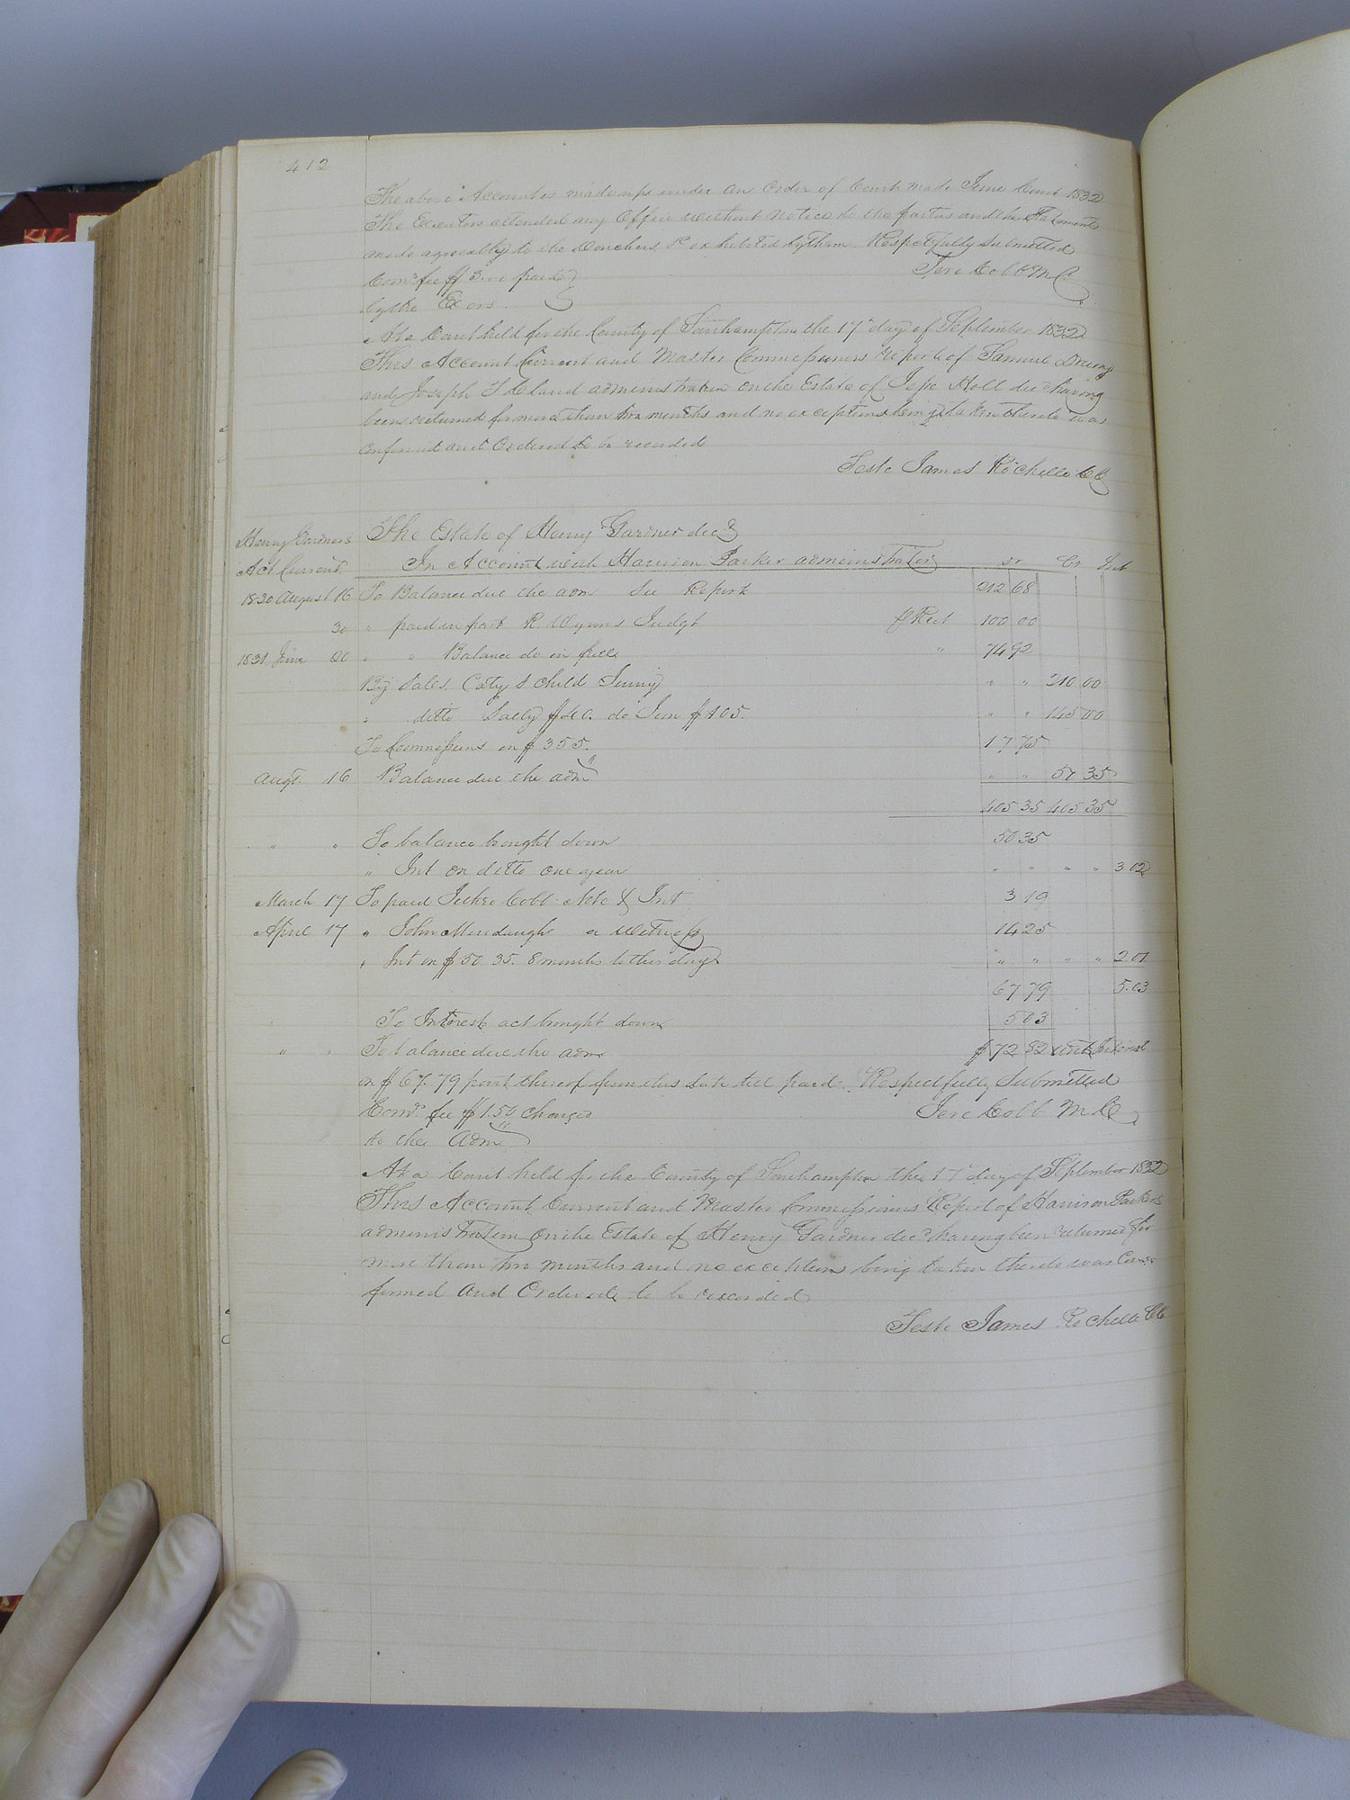 412
The above Account is made up under an Order of Court made June Court 1832
The Executors attended my Office without notice to the parties and the Statements
made agreeably to the Vouchers &c exhibited by them Respectfully Submitted
Comrs fee $ paid Jere Cobb M C
by the Exors
At a Court held for the County of Southampton the 17th day of September 1832
This Account Current and Master Commissioners Report of Samuel Drewry
and Joseph T Claud administration on the Estate of Jesse Holl decd having
been returned for more than two months and no exceptions being taken thereto was
confirmed and Ordered to be recorded
Teste James Rochelle CC
Henry Gardners The Estate of Henry Gardner decd
Act Current In Account with Harrison Parker administrator Dr Cr Int
1830 August 16 To Balance due the adm See Report 212 68
30 " paid in part R. Wynns Judgt p Rect 100 00
1831 June 20 " " Balance do in full " 74 92
By Sales Casty & child Jenny " " 210 00
" ditto Sally $40. do Jem $105. " " 145 00
To Commissions on $355. 17 75
Augt. 16 Balance due the admr " " 50 35
405 35 405 35
" " To balance brought down 50 35
" Int on ditto one year " " " " 3.02
March 17 To paid Jethro Cobb Note & Int 3 19
April 17 " John a witness 14 25
" Int on $50 35. 8 months to this day " " " " 2.01
67 79 5.03
To Interest act brought down 5 03
" " To balance due the adm $72 82 with Interest
on $67.79 part thereof from this date till paid. Respectfully Submitted
Comrs fee $1.50 charged Jere Cobb M.C
to the Admr
At a Court held for the County of Southampton the 17th day of September 1832
This Account Current and Master Commissioners Report of Harrison Parkers
administration on the Estate of Henry Gardner decd having been returned for
more than two months and no exceptions being taken thereto was Con-
firmed and Ordered to be recorded
Teste James Rochelle CC